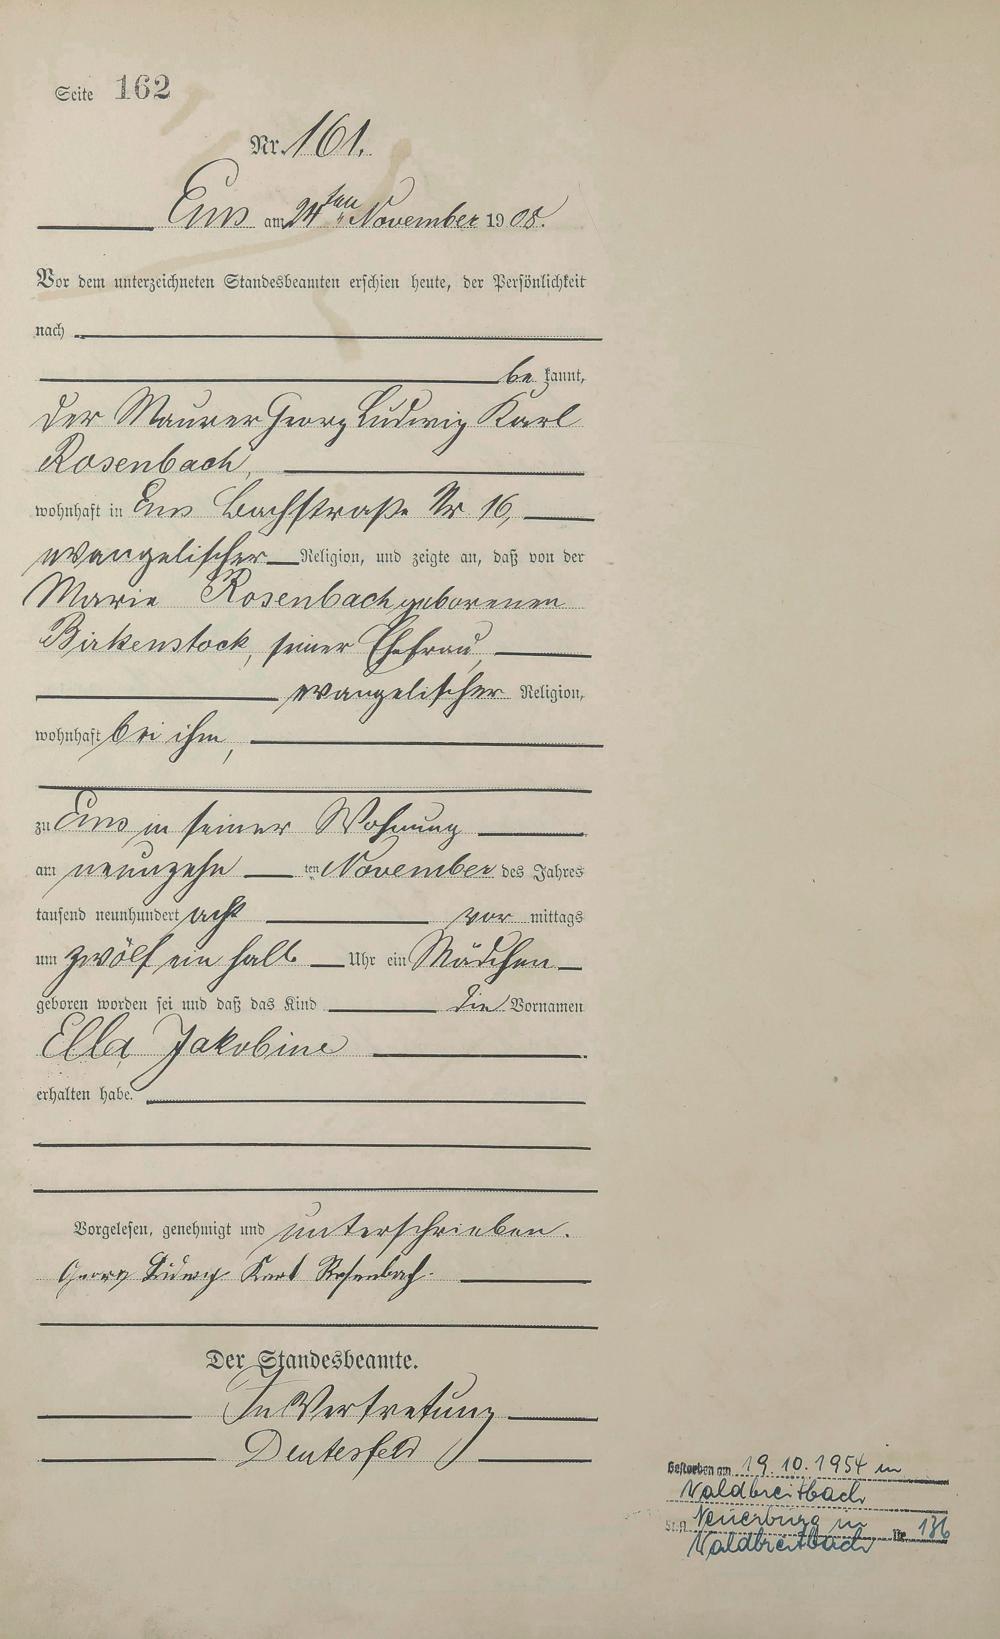 Seite 162
Nr. 161.
Ems am 24ten November 1908.
Vor dem unterzeichneten Standesbeamten erschien heute, der Persönlichkeit
nach
be kannt,
der Maurer Georg Ludwig Karl
Rosenbach,
wohnhaft in Ems Bachstraße Nr 16,
evangelischer Religion, und zeigte an, daß von der
Marie Rosenbach geborenen
Birkenstock, seiner Ehefrau,
evangelischer Religion,
wohnhaft bei ihm,
zu Ems in seiner Wohnung
am neunzehn ten November des Jahres
tausend neunhundert acht vor mittags
um zwölf ein halb Uhr ein Mädchen
geboren worden sei und daß das Kind die Vornamen
Ella Jakobine
erhalten habe.
Vorgelesen, genehmigt und unterschrieben.
Georg Ludwig Karl Rosenbach.
Der Standesbeamte.
In Vertretung
Deutesfeld
Gestorben am 19.10.1954 in
Waldbreitbach
St.A. Neuerburg in
Waldbreitbach Nr. 136